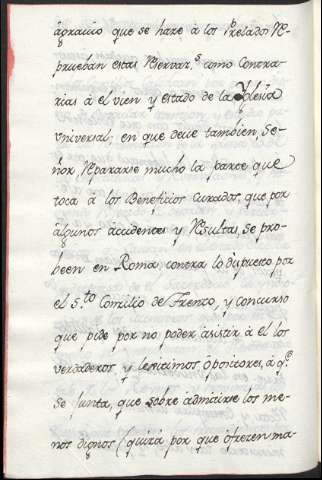 agrauio que se haze á los Prelados Re-
prueban estas Reservar.s como Contra-
rias á el vien y estado de la Yglesia
vniversal; en que deue tambien, Se-
ñor, Repararse mucho la parte que
toca á los Beneficios Curados, que por
algunos accidentes y Resultas, se pro-
been en Roma contra lo dispuesto por
el S.to Conzilio de Trento, y Concurso
que pide por no poder asistir á el los
verdaderos y lexitimos Opositores, á q.e
se junta, que sobre admitirse los me-
nos dignos (quizá por que ofrezen ma-